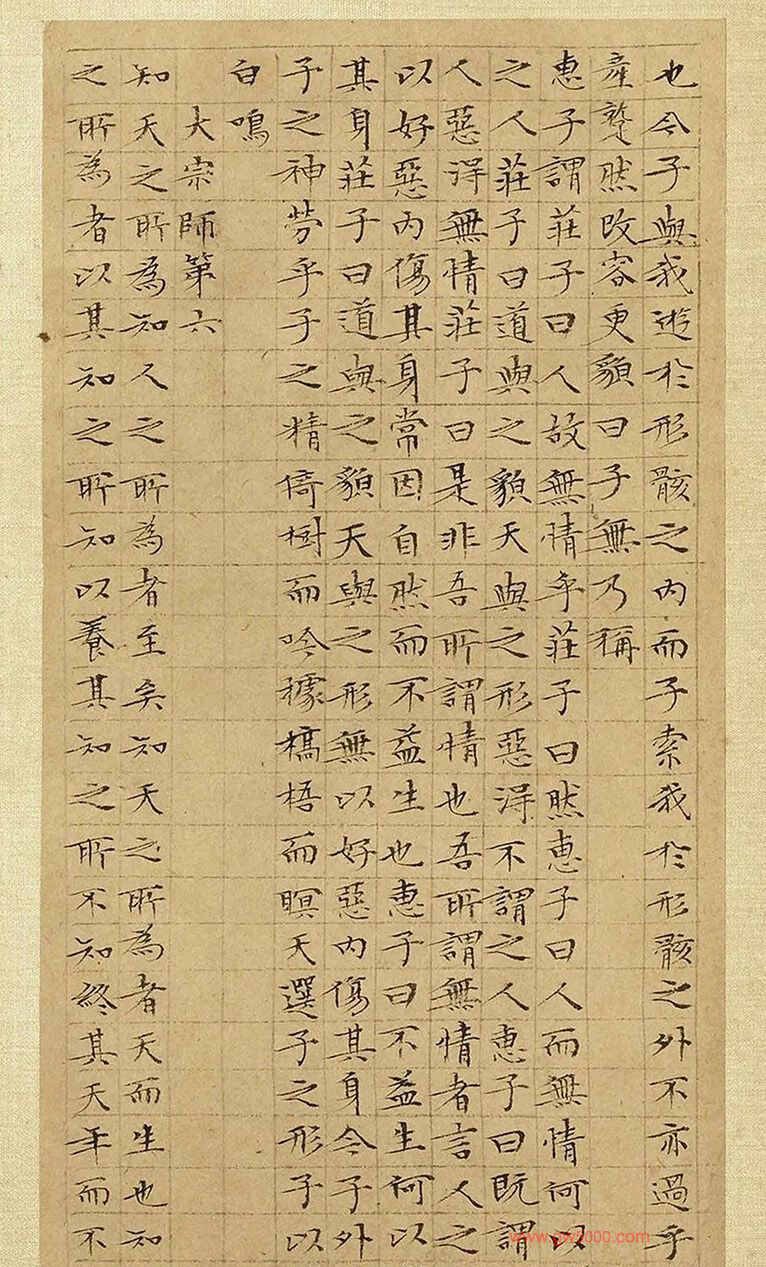 也今子與我遊於形骸之内而子索我於形骸之外不亦過乎
產蹵然改容更貌曰子無乃稱
惠子謂莊子曰人故無情乎莊子曰然惠子曰人而無情何以
之人莊子曰道與之貌天與之形惡得不謂之人惠子曰既謂
人惡得無情莊子曰是非吾所謂情也吾所謂無情者言人之
以好惡内傷其身常因自然而不益生也惠子曰不益生何以
其身莊子曰道與之貌天與之形無以好惡内傷其身今子外
子之神勞乎子之精倚樹而吟據槁梧而瞑天選子之形子以
白鳴
大宗師第六
知天之所為知人之所為者至矣知天之所為者天而生也知
之所為者以其知之所知以養其知之所不知終其天年而不